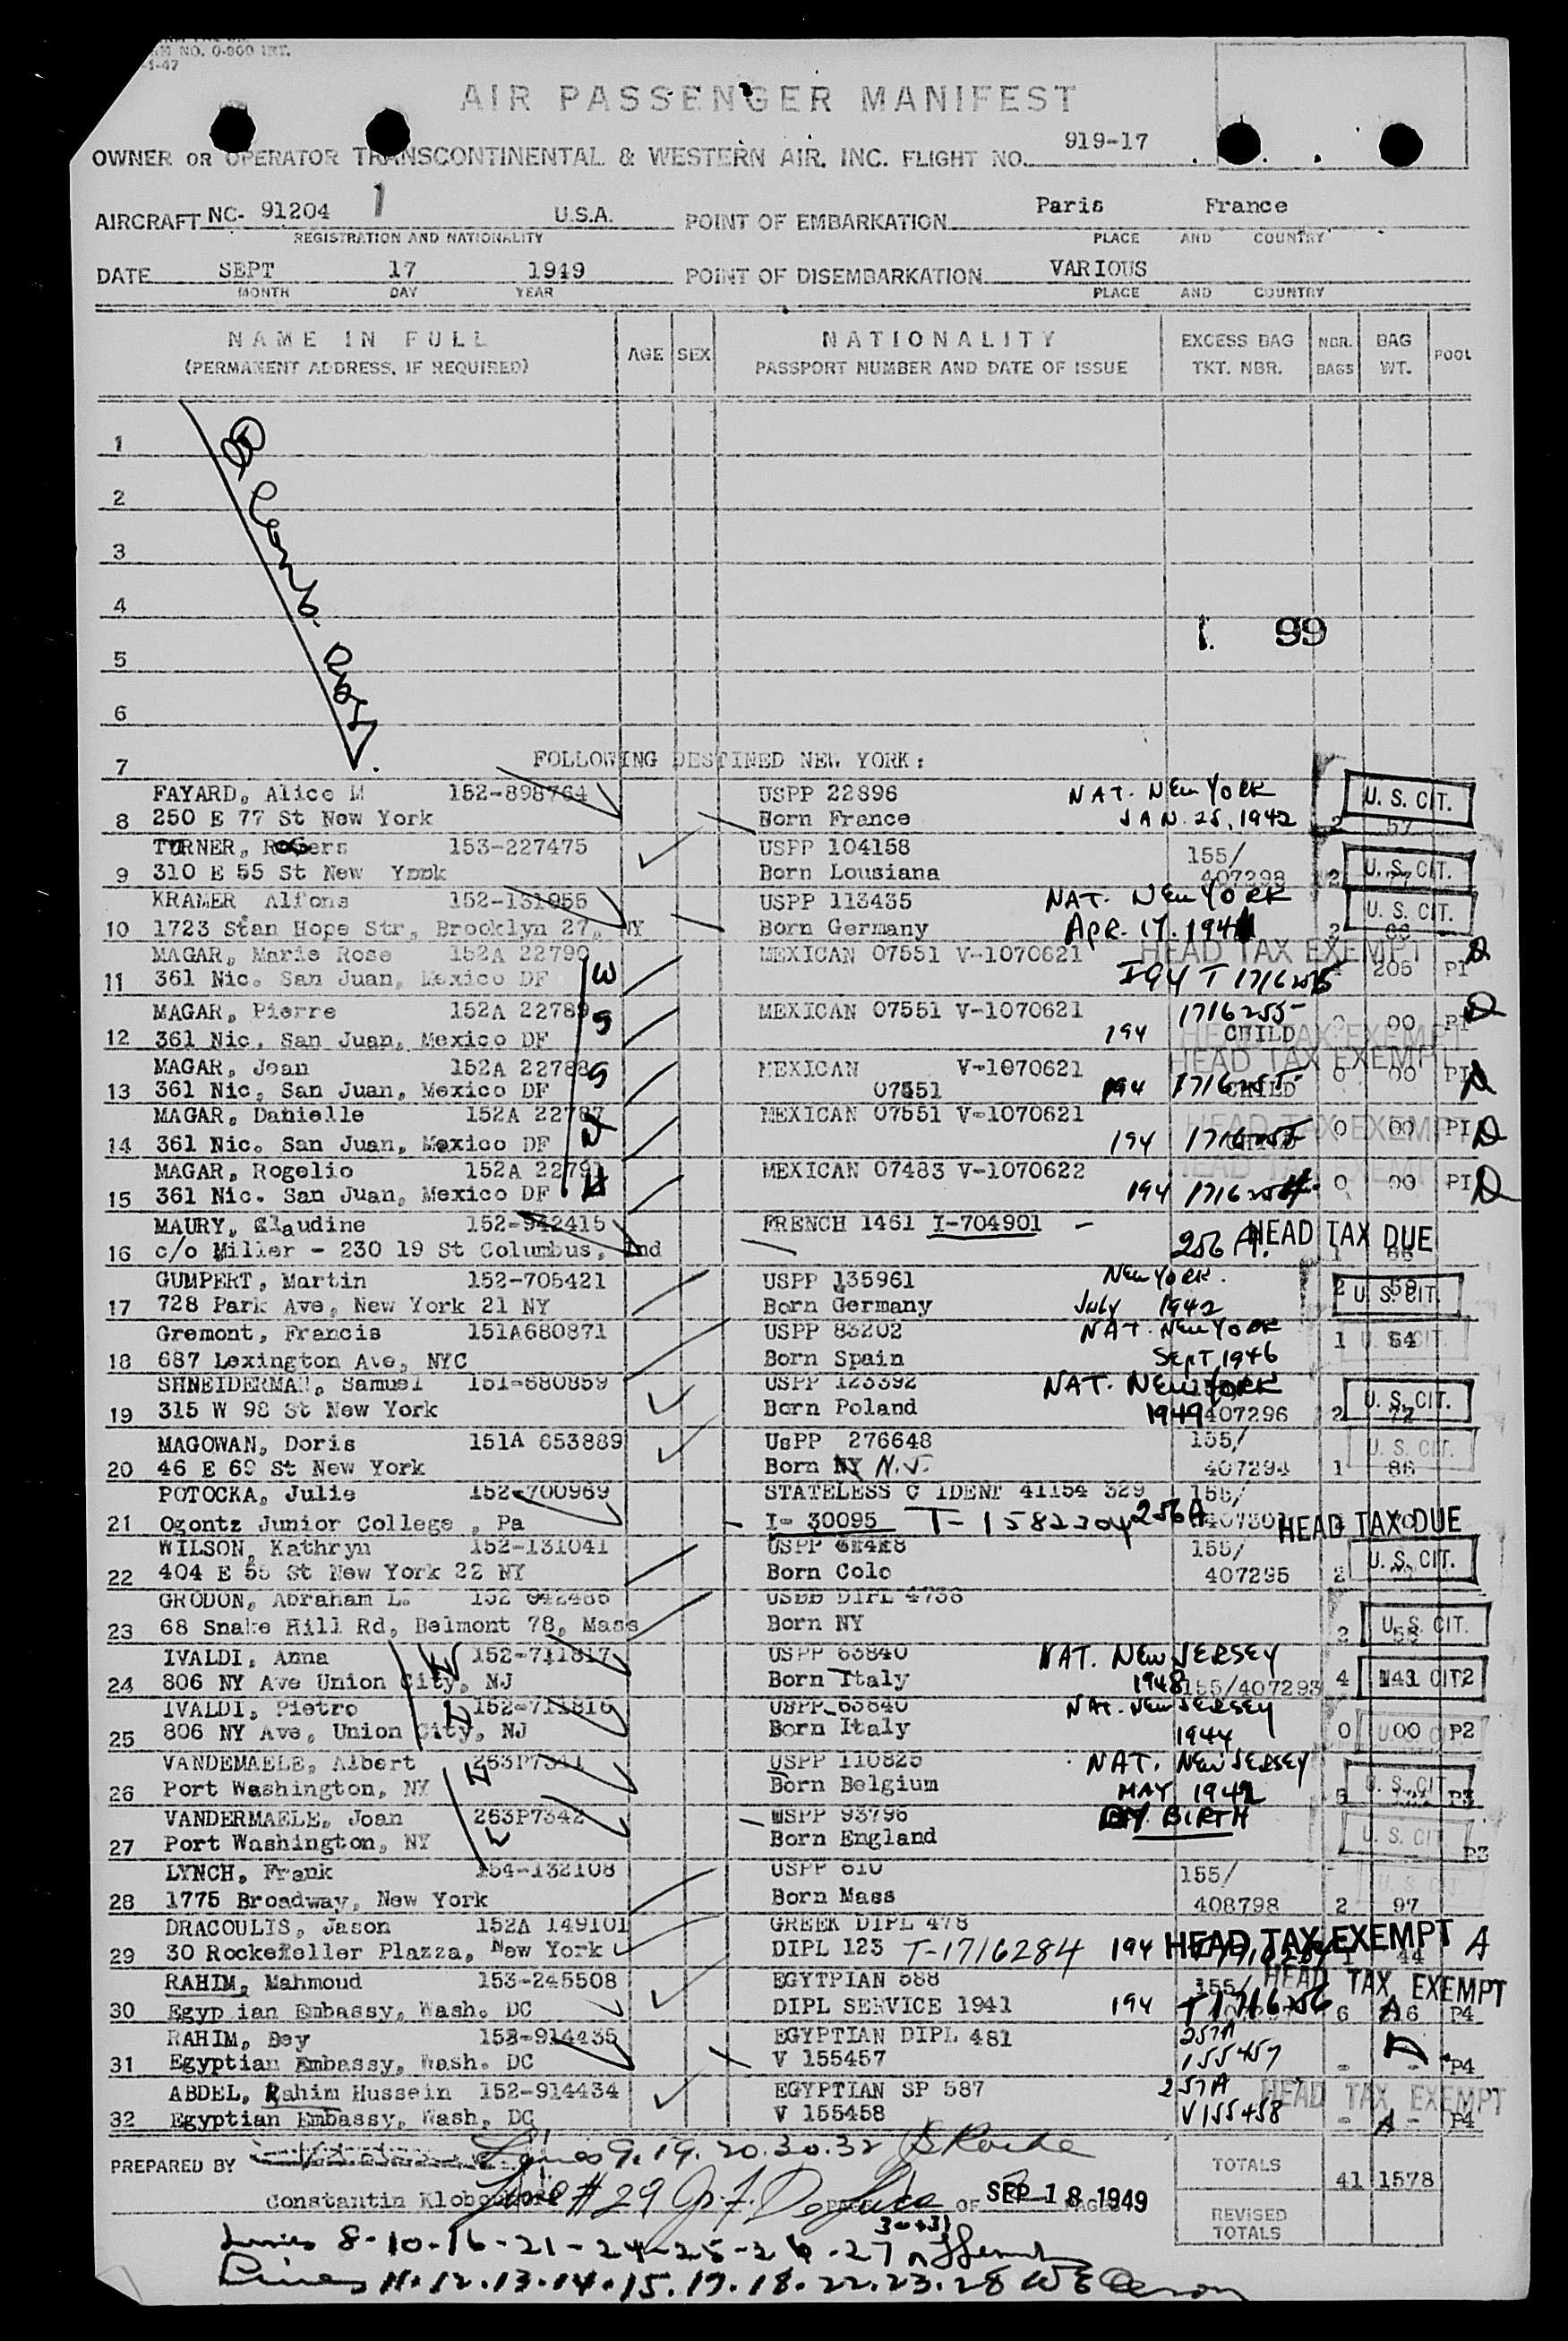 NO. 0-800 INT.
-1-47
AIR PASSENGER MANIFEST
OWNER OR OPERATOR TRANSCONTINENTAL & WESTERN AIR, INC. FLIGHT NO. 919-17
AIRCRAFT NC- 91204 1 U.S.A. POINT OF EMBARKATION Paris France
REGISTRATION AND NATIONALITY PLACE AND COUNTRY
DATE SEPT 17 1949 POINT OF DISEMBARKATION VARIOUS
MONTH DAY YEAR PLACE AND COUNTRY
NAME IN FULL AGE SEX NATIONALITY EXCESS BAG NBR. BAG POOL
(PERMANENT ADDRESS, IF REQUIRED) PASSPORT NUMBER AND DATE OF ISSUE TKT. NBR. BAGS WT.
1
2
3
4
5 1. 99
6
7 FOLLOWING DESTINED NEW YORK:
FAYARD, Alice M 152-898764 USPP 22896 NAT. NEW YORK U. S. CIT.
8 250 E 77 St New York Born France JAN. 25, 1942 2 57
TURNER, Rogers 153-227475 USPP 104158 155/ U. S. CIT.
9 310 E 55 St New York Born Lousiana 407298 2 77
KRAMER Alfons 152-131955 USPP 113435 NAT. NEW YORK U. S. CIT.
10 1723 Stan Hope Str, Brooklyn 27, NY Born Germany APR. 17. 1941 2
MAGAR, Marie Rose 152A 22790 MEXICAN 07551 V-1070621 HEAD TAX EXEMPT
11 361 Nic. San Juan, Mexico DF W I94 T 1716255 205 PI D
MAGAR, Pierre 152A 22789 MEXICAN 07551 V-1070621 1716255
12 361 Nic. San Juan, Mexico DF S 194 CHILD HEAD TAX EXEMPT 0 00 PI D
MAGAR, Jean 152A 22788 MEXICAN V-1070621 HEAD TAX EXEMPT
13 361 Nic, San Juan, Mexico DF S 07551 194 1716255 CHILD 0 00 PI D
MAGAR, Danielle 152A 22787 MEXICAN 07551 V-1070621 HEAD TAX EXEMPT
14 361 Nic. San Juan, Mexico DF 194 1716255 0 00 PI D
MAGAR, Rogelio 152A 22791 MEXICAN 07483 V-1070622 HEAD TAX EXEMPT
15 361 Nic. San Juan, Mexico DF H 194 1716254 0 00 PI D
MAURY, Claudine 152-942415 FRENCH 1461 I-704901 - HEAD TAX DUE
16 c/o Miller - 230 19 St Columbus, Ind 256 A. 1 66
GUMPERT, Martin 152-705421 USPP 135961 NEW YORK.
17 728 Park Ave, New York 21 NY Born Germany July 1942 2 59 U. S. CIT.
Gremont, Francis 151A680871 USPP 83202 NAT. NEW YORK U. S. CIT.
18 687 Lexington Ave, NYC Born Spain SEPT, 1946 1 64
SHNEIDERMAN, Samuel 151-680859 USPP 123392 NAT. NEW YORK U. S. CIT.
19 315 W 98 St New York Born Poland 1949 407296 2 72
MAGOWAN, Doris 151A 653889 UsPP 276648 155/ U. S. CIT.
20 46 E 69 St New York Born NY N.J. 407294 1 86
POTOCKA, Julie 152-700969 STATELESS C IDENT 41154 329 155/
21 Ogontz Junior College , Pa I- 30095 T-1582304 256A HEAD TAX DUE
WILSON, Kathryn 152-131041 USPP 155/ U. S. CIT.
22 404 E 55 St New York 22 NY Born Colo 407295 2
GRODON, Abraham L. 152 942486 DIPL 4736
23 68 Snake Hill Rd, Belmont 78, Mass Born NY 2 58 U. S. CIT.
IVALDI, Anna W 152-711817 USPP 63840 NAT. NEW JERSEY
24 806 NY Ave Union City, NJ Born Italy 1948 155/407293 4 143
IVALDI, Pietro H 152-711816 USPP 63640 NAT. NEW JERSEY
25 806 NY Ave, Union City, NJ Born Italy 1944 0 00 P2
VANDEMAELE, Albert H 263P7341 USPP 110825 NAT. NEW JERSEY
26 Port Washington, NY Born Belgium MAY 1942 U. S. CIT. P3
VANDERMAELE, Joan 263P7342 USPP 93796 BY BIRTH
27 Port Washington, NY W Born England U. S. CIT. P3
LYNCH, Frank 154-132108 USPP 610 155/ U. S. CIT.
28 1775 Broadway, New York Born Mass 408798 2 97
DRACOULIS, Jason 152A 149101 GREEK DIPL 478
29 30 Rockefeller Plazza, New York DIPL 123 T-1716284 194 HEAD TAX EXEMPT 1 44 A
RAHIM, Mahmoud 153-245508 EGYTPIAN 588 155/ HEAD TAX EXEMPT
30 Egyp ian Embassy, Wash. DC DIPL SERVICE 1941 194 T1716256 6 P4
RAHIM, Bey 152-914435 EGYPTIAN DIPL 481 257A
31 Egyptian Embassy, Wash. DC V 155457 155457 - A - P4
ABDEL, Rahim Hussein 152-914434 EGYPTIAN SP 587 257A HEAD TAX EXEMPT
32 Egyptian Embassy, Wash, DC V 155458 V155458 - A - P4
PREPARED BY Lines 9. 19. 20. 30. 32 TOTALS 41 1578
Constantin Line #29 OF SEP 18 1949 PAGES
REVISED TOTALS
30+31
Lines 8-10-16-21-24-25-26-27
Lines 11.12.13.14.15.17.18.22.23.28